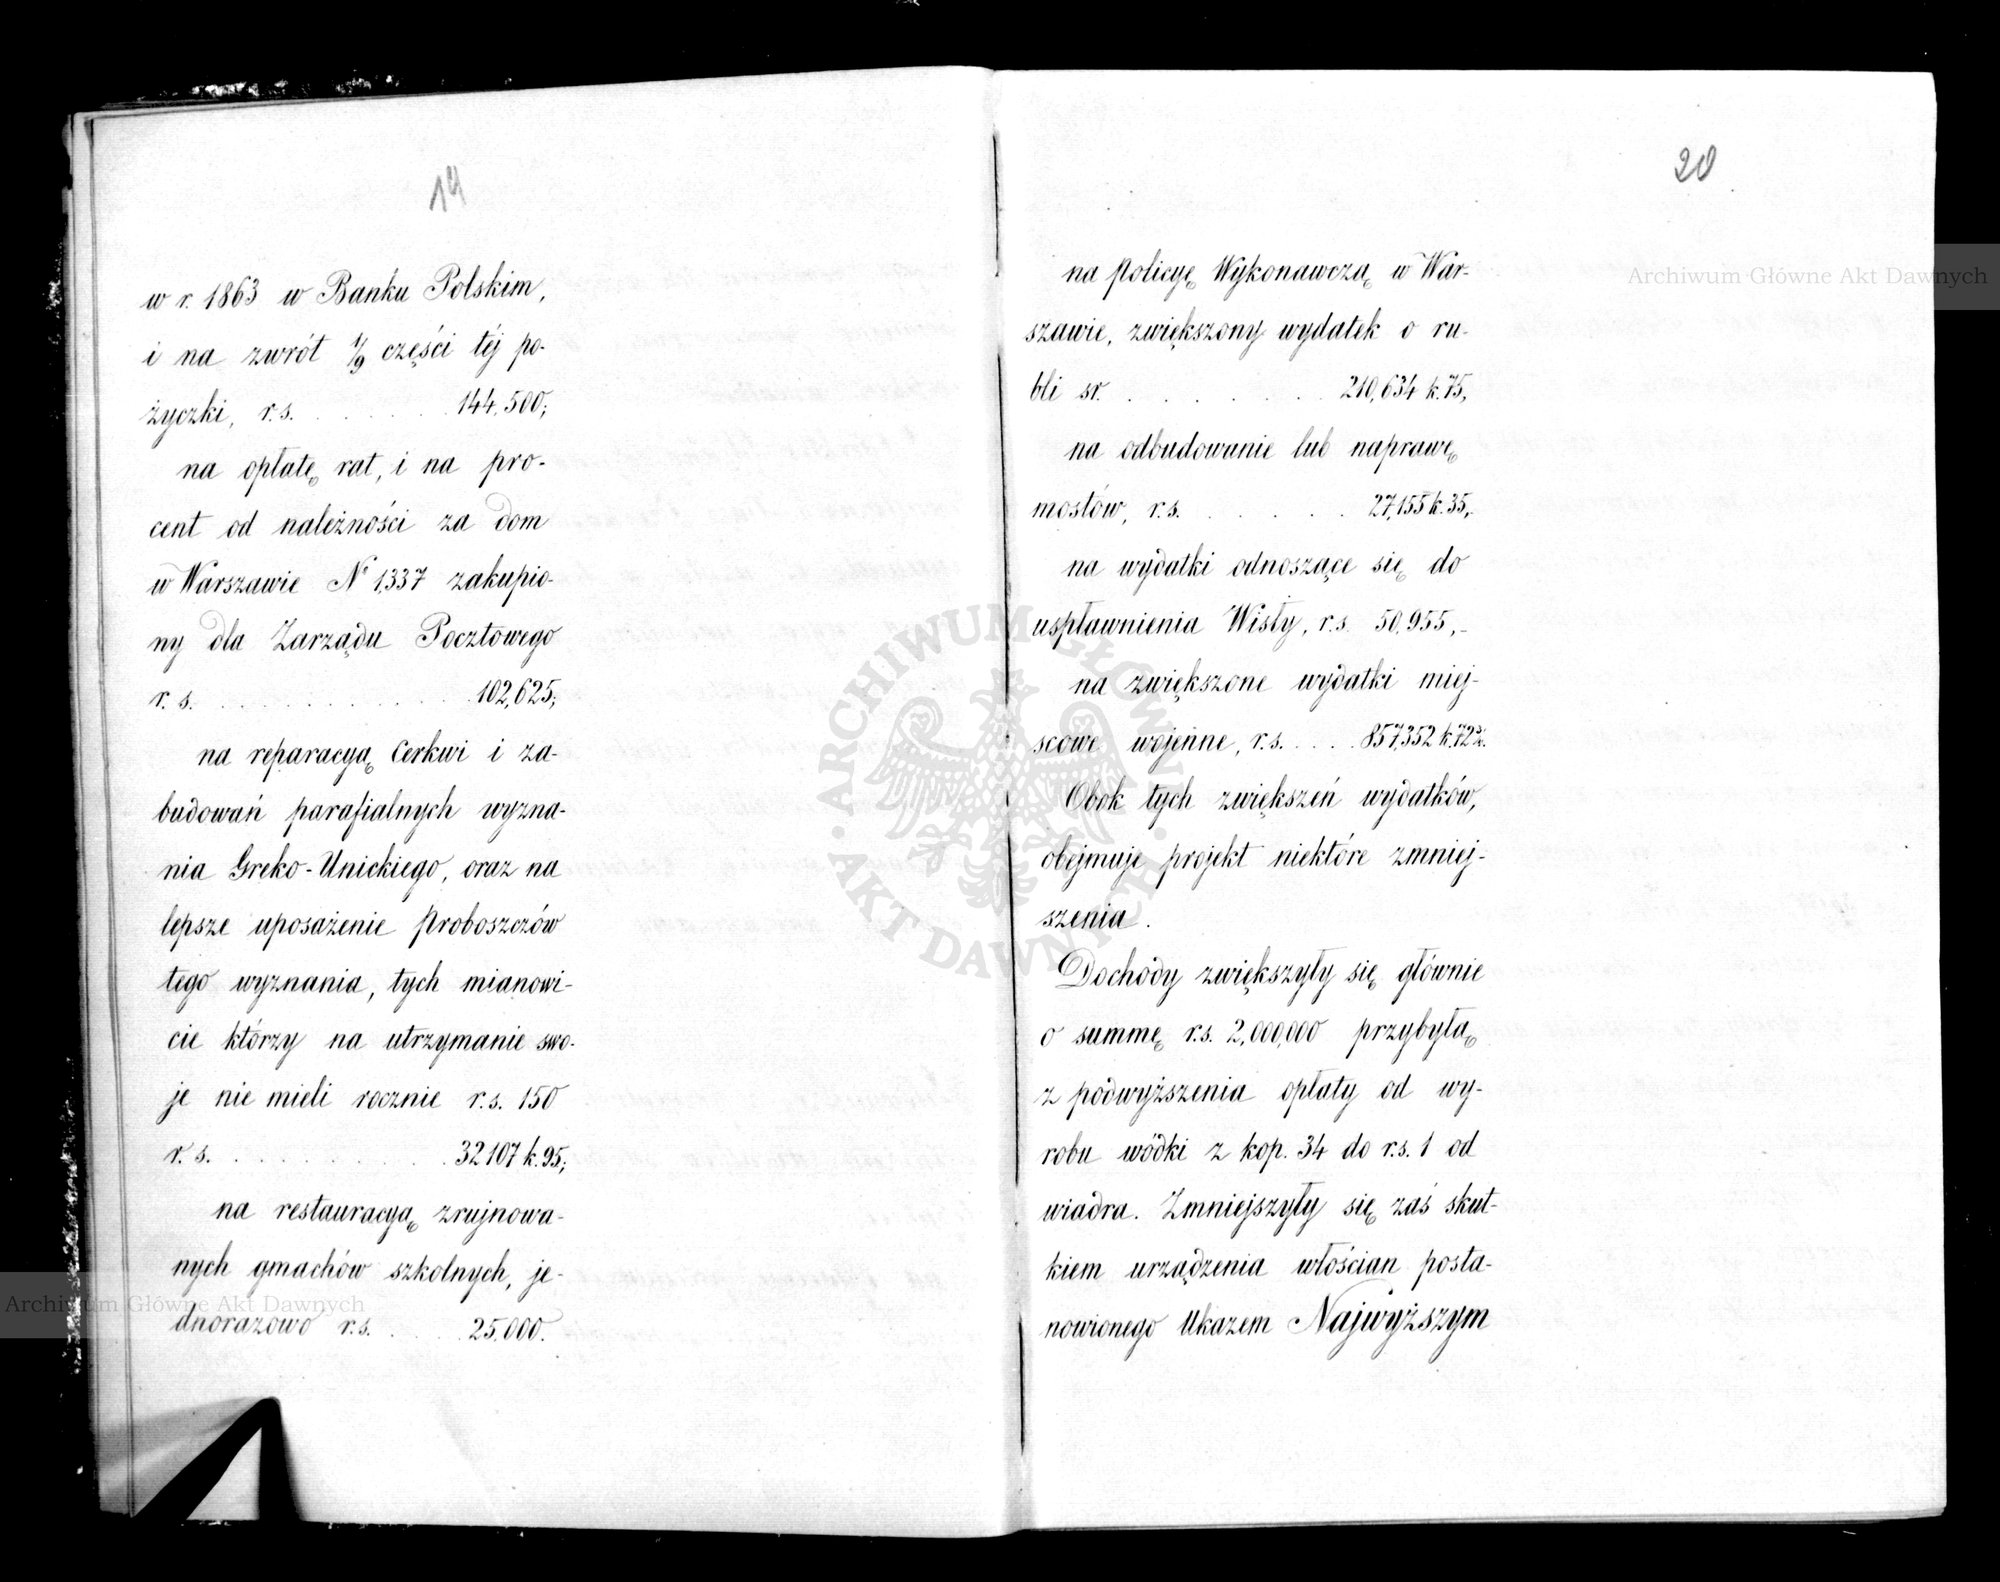 19
w r. 1863 w Banku Polskim,
i na zwrót 1/9 części téj po-
życzki, r.s. . . . . . 144,500;
na opłatę rat, i na pro-
cent od należności za dom
w Warszawie № 1337 zakupio-
ny dla Zarządu Pocztowego
r. s. . . . . . . . . . . . . 102,625;
na reparacyą Cerkwi i za-
budowań parafialnych wyzna-
nia Greko-Unickiego, oraz na
lepsze uposażenie Proboszczów
tego wyznania, tych mianowi-
cie którzy na utrzymanie swo-
je nie mieli rocznie r.s. 150
r. s. . . . . . . . . . . 32107 k. 95;
na restauracyą zrujnowa-
nych gmachów szkolnych, je-
dnorazowo r.s. . . . . 25,000.
20
na Policyę Wykonawczą w War-
szawie, zwiększony wydatek o ru-
bli sr. . . . . . . . . 210,634 k. 75,
na odbudowanie lub naprawę
mostów, r.s. . . . . . 27,155 k. 35,
na wydatki odnoszące się do
uspławnienia Wisły, r.s. 50,955,
na zwiększone wydatki miej-
scowe wojenne, r.s. . . . . 857,352 k. 72
Obok tych zwiększeń wydatków,
obejmuje projekt niektóre zmniej-
szenia.
Dochody zwiększyły się głównie
o summę r.s. 2,000,000 przybyłą
z podwyższenia opłaty od wy-
robu wódki z kop. 34 do r.s. 1 od
wiadra. Zmniejszyły się zaś skut-
kiem urządzenia włościan posta-
nowionego Ukazem Najwyższym
Archiwum Główne Akt Dawnych
ARCHIWUM GŁÓWNE AKT DAWNYCH
Archiwum Główne Akt Dawnych